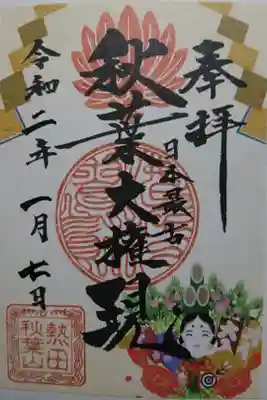 奉拝
日本最古
秋葉大権現
令和二年 一月七日
熱田
秋葉山